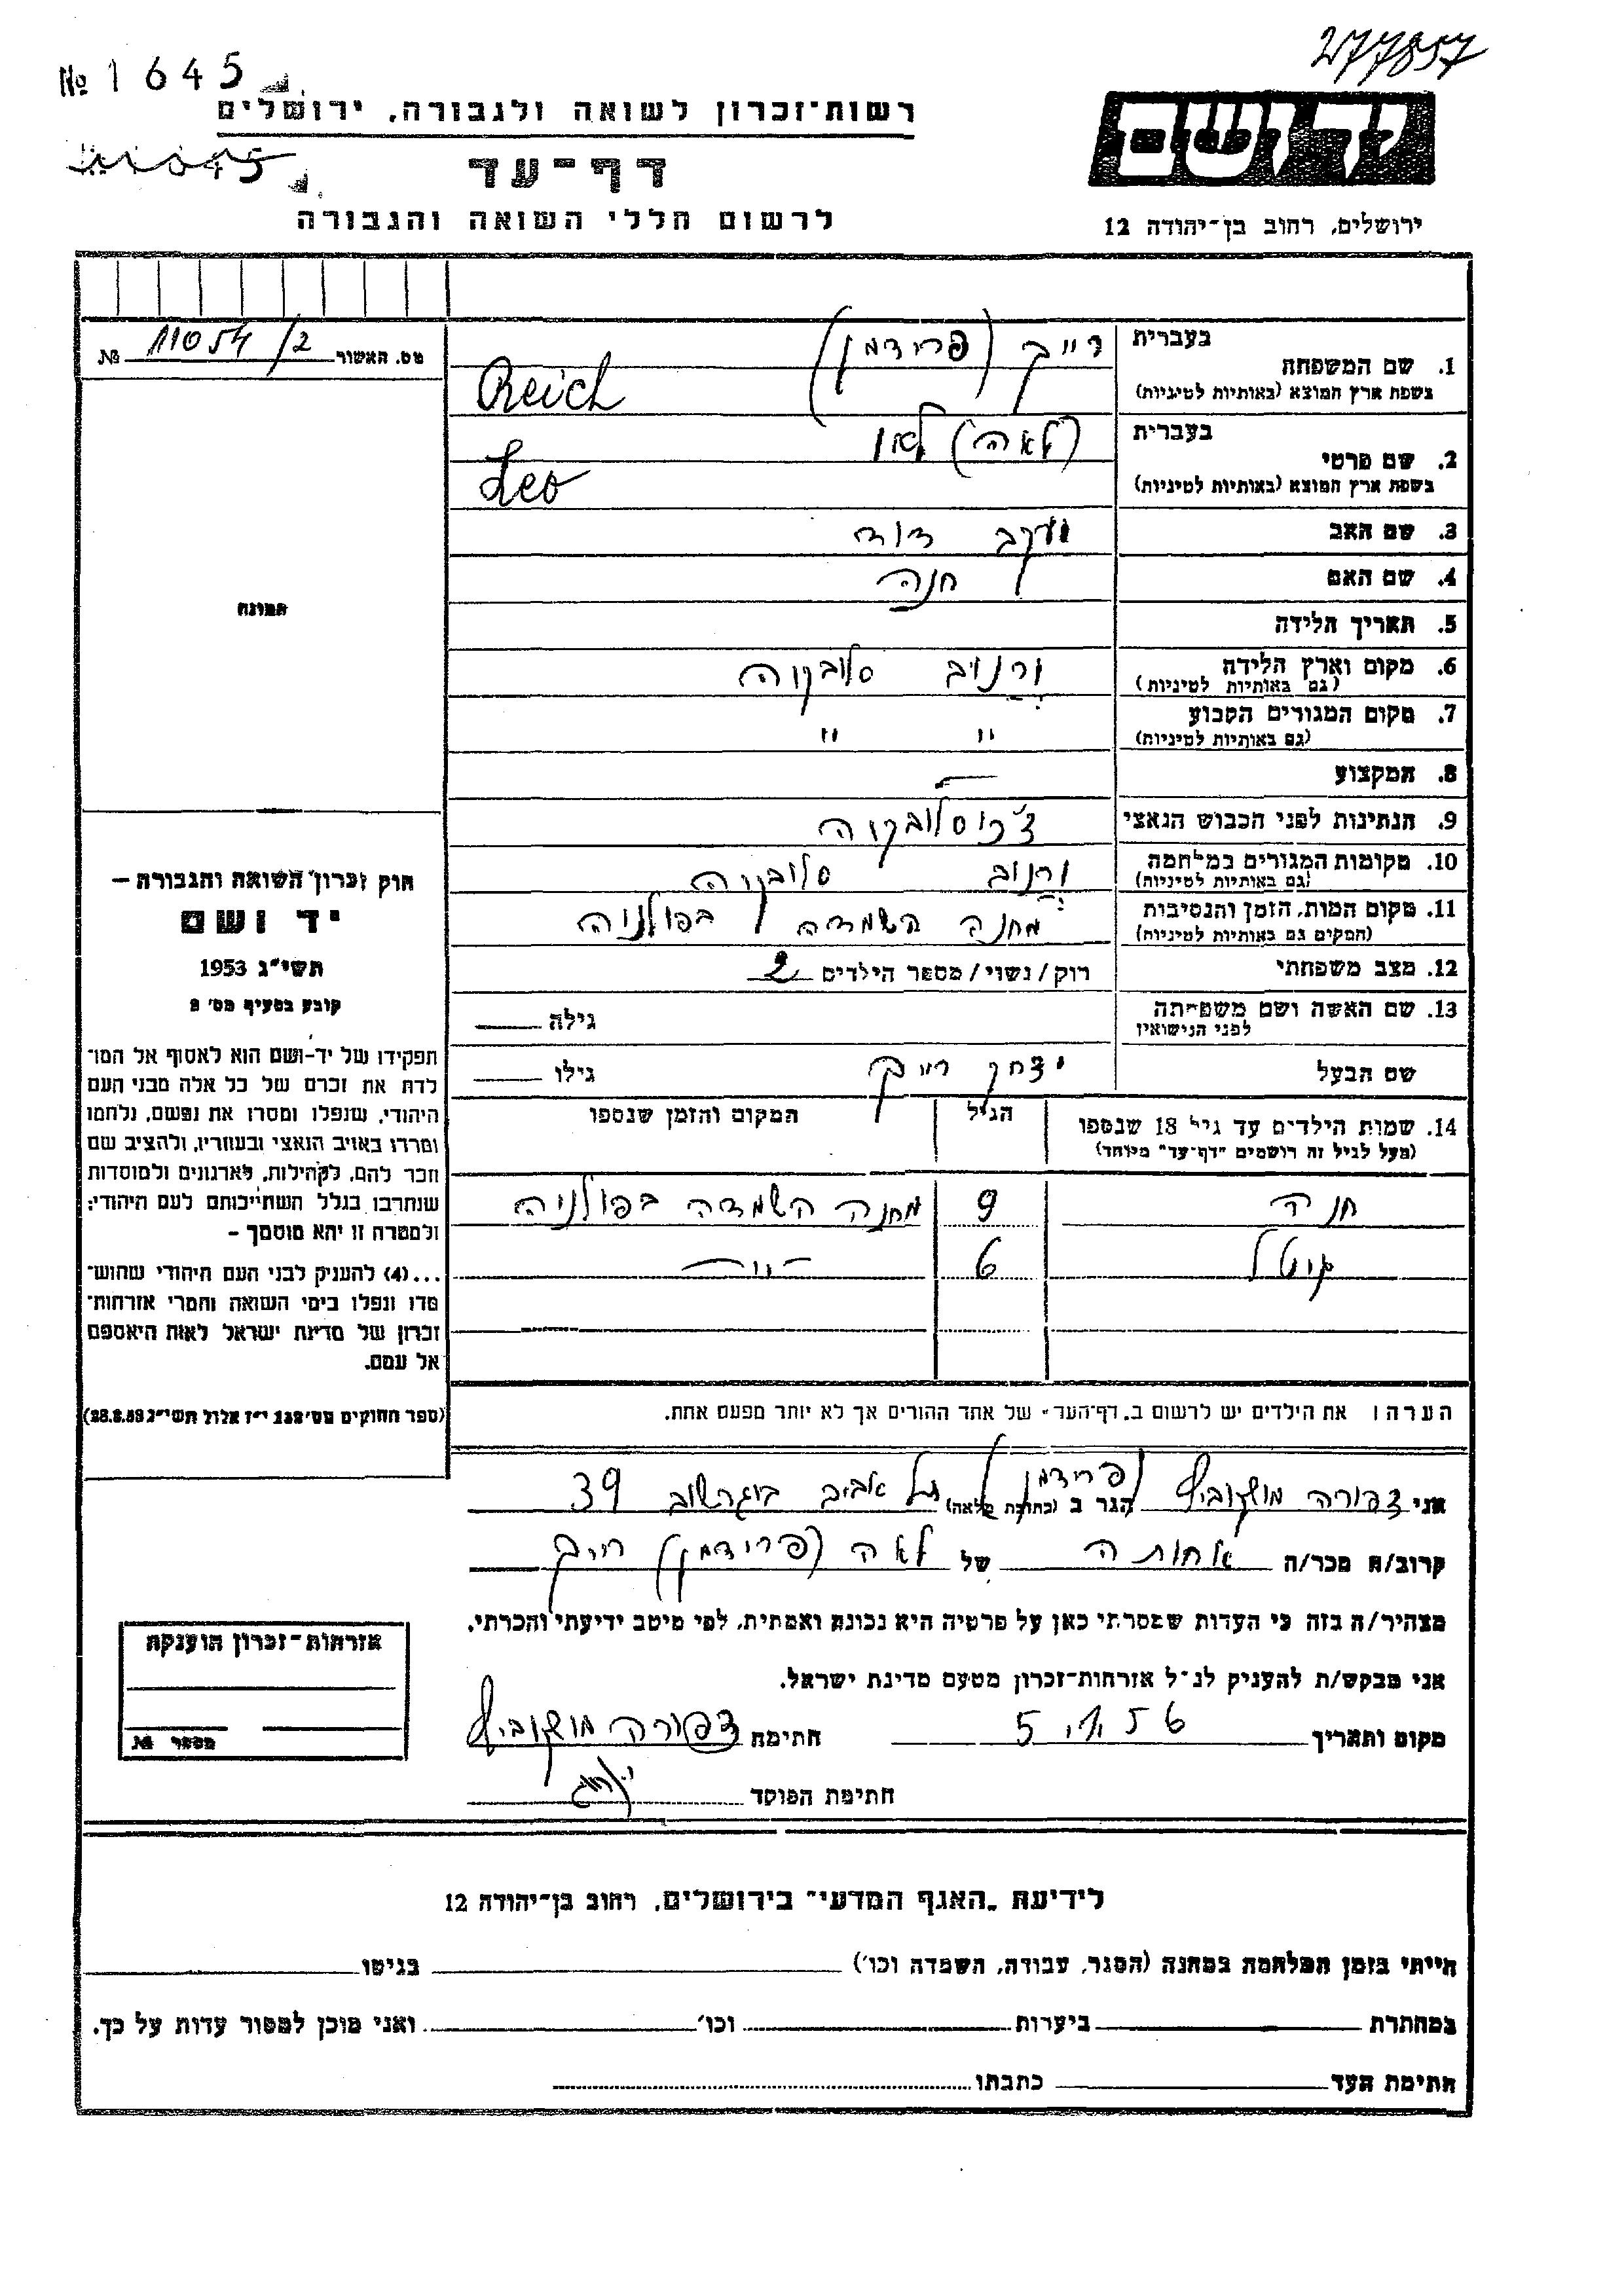 277857
№ 1645
רשות-זכרון לשואה ולגבורה, ירושלים
יד ושם
דף-עד
לרשום חללי השואה והגבורה
ירושלים, רחוב בן-יהודה 12
מס. האשור 11054/2 №
1. שם המשפחה בעברית רייך (פרידמן)
בשפת ארץ המוצא (באותיות לטיניות) Reich
2. שם פרטי בעברית (לאה) לאו
בשפת ארץ המוצא (באותיות לטיניות) Leo
3. שם האב יעקב דוד
4. שם האם חנה
תמונה
5. תאריך הלידה
6. מקום וארץ הלידה ורנוב סלובקיה
(גם באותיות לטיניות)
7. מקום המגורים הקבוע " "
(גם באותיות לטיניות)
8. המקצוע —
9. הנתינות לפני הכבוש הנאצי צ'כוסלובקיה
10. מקומות המגורים במלחמה ורנוב סלובקיה
(גם באותיות לטיניות)
11. מקום המות, הזמן והנסיבות מחנה השמדה בפולניה
(המקים גם באותיות לטיניות)
12. מצב משפחתי רוק/נשוי/מספר הילדים 2
13. שם האשה ושם משפחתה גילה
לפני הנישואין
שם הבעל יצחק רייך גילו
14. שמות הילדים עד גיל 18 שנספו הגיל המקום והזמן שנספו
(מעל לגיל זה רושמים "דף-עד" מיוחד)
חנה 9 מחנה השמדה בפולניה
גיטל 6 — " —
הערה: את הילדים יש לרשום ב„דף-העד" של אחד ההורים אך לא יותר מפעם אחת.
חוק זכרון השואה והגבורה —
יד ושם
תשי"ג 1953
קובע בסעיף מס' 2
תפקידו של יד-ושם הוא לאסוף אל המו־
לדת את זכרם של כל אלה מבני העם
היהודי, שנפלו ומסרו את נפשם, נלחמו
ומרדו באויב הנאצי ובעוזריו, ולהציב שם
וזכר להם, לקהילות, לארגונים ולמוסדות
שנחרבו בגלל השתייכותם לעם היהודי;
ולמטרה זו יהא מוסמך —
...(4) להעניק לבני העם היהודי שהוש־
מדו ונפלו בימי השואה והמרי אזרחות־
זכרון של מדינת ישראל לאות היאספם
אל עמם.
(ספר החוקים מס' 132 י"ז אלול תשי"ג 28.8.53)
אני צפורה מושקוביץ (פרידמן) הגר ב (כתובת מלאה) תל אביב בוגרשוב 39
קרוב/ה מכר/ה אחותה של לאה (פרידמן) רייך
מצהיר/ה בזה כי העדות שמסרתי כאן על פרטיה היא נכונה ואמתית, לפי מיטב ידיעתי והכרתי.
אני מבקש/ת להעניק לנ"ל אזרחות-זכרון מטעם מדינת ישראל.
מקום ותאריך 5.VI.56 חתימה צפורה מושקוביץ
חתימת הפוקד
אזרחות-זכרון הוענקה
מספר №
לידיעת „האגף המדעי" בירושלים, רחוב בן-יהודה 12
הייתי בזמן המלחמה במחנה (הסגר, עבודה, השמדה וכו') בגיטו
במחתרת ביערות וכו' ואני מוכן למסור עדות על כך.
חתימת העד כתבתו